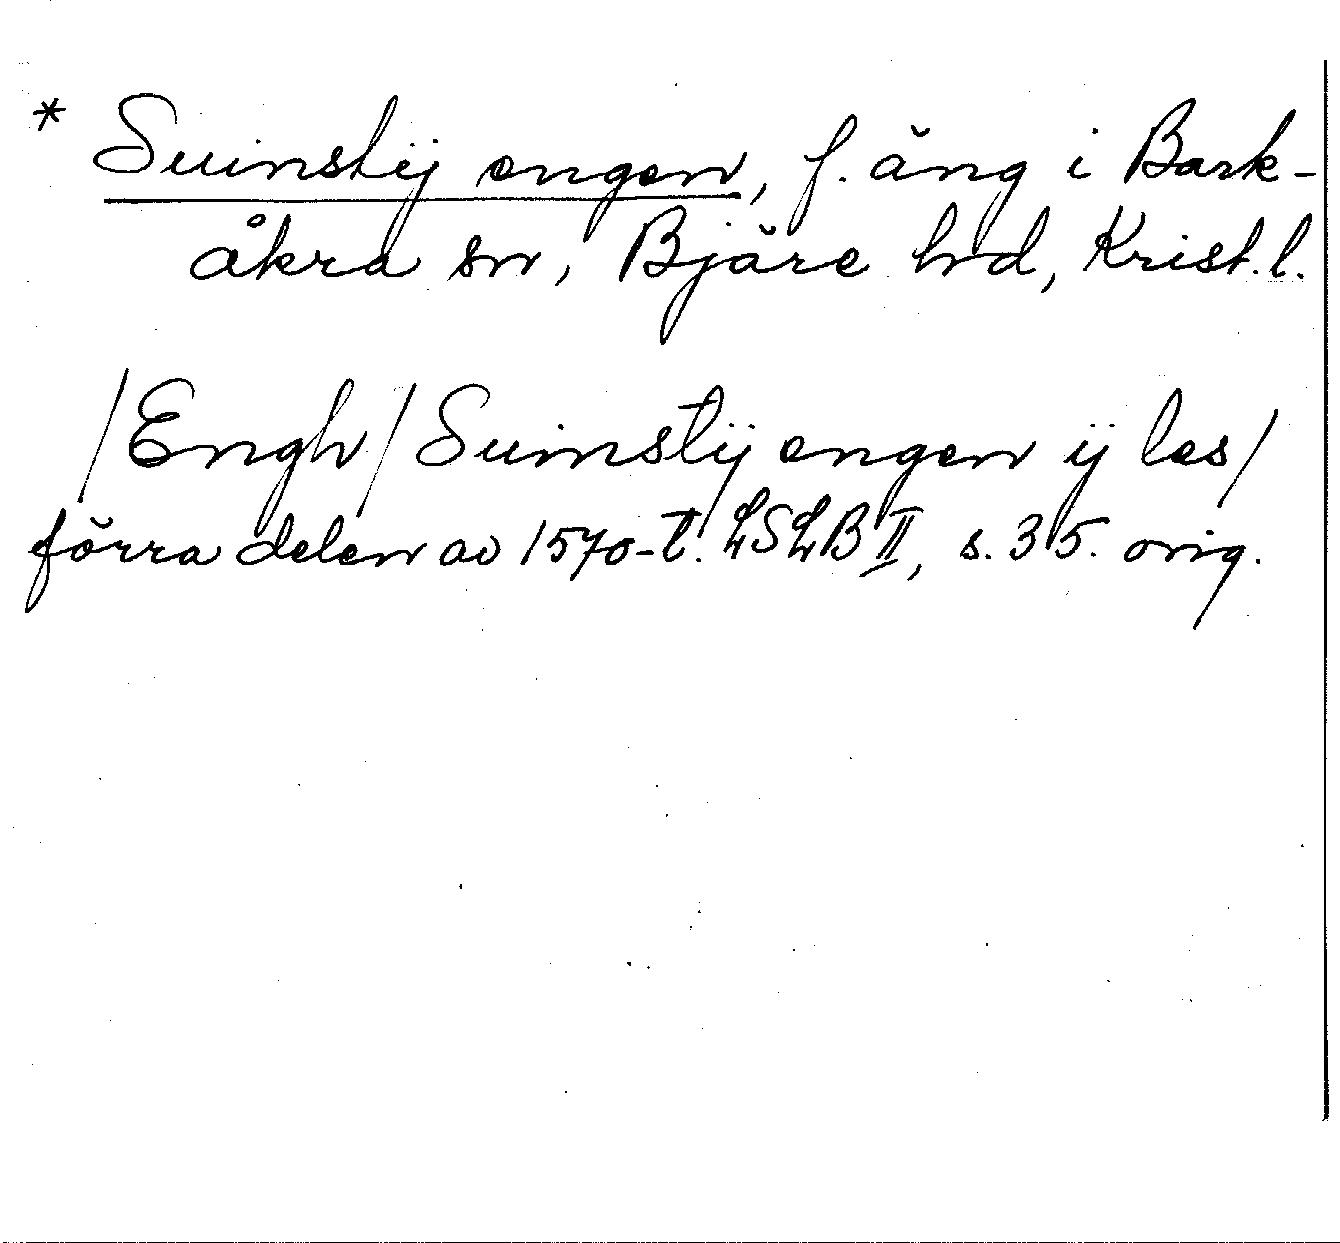 * Suinstij engen, f. äng i Bark-
åkra sn, Bjäre hd, Krist.l.
/Engh/ Suinstij engen ij les/
förra delen av 1570-t. LSLB II, s. 35. orig.